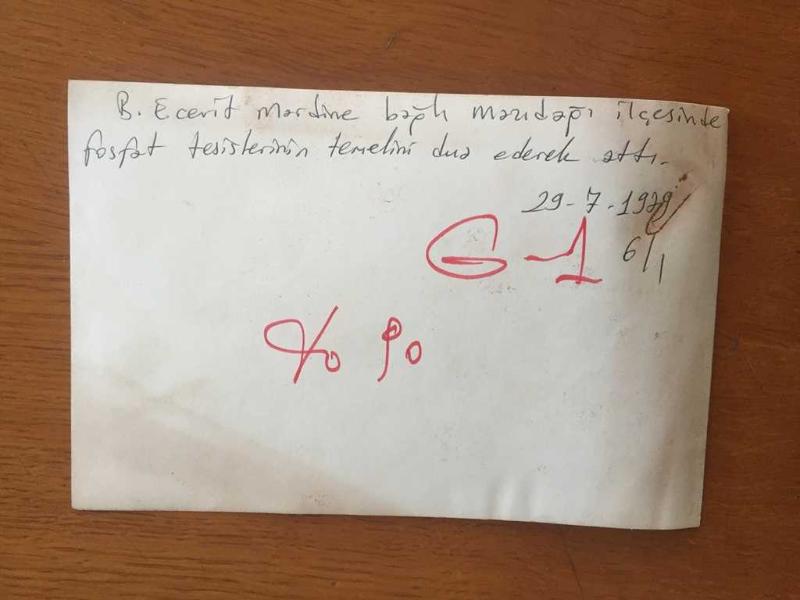 B. Ecevit Mardine bağlı Mazıdağı ilçesinde
fosfat tesislerinin temelini dua ederek attı.
29-7-1979
6/1
G-1
% 90